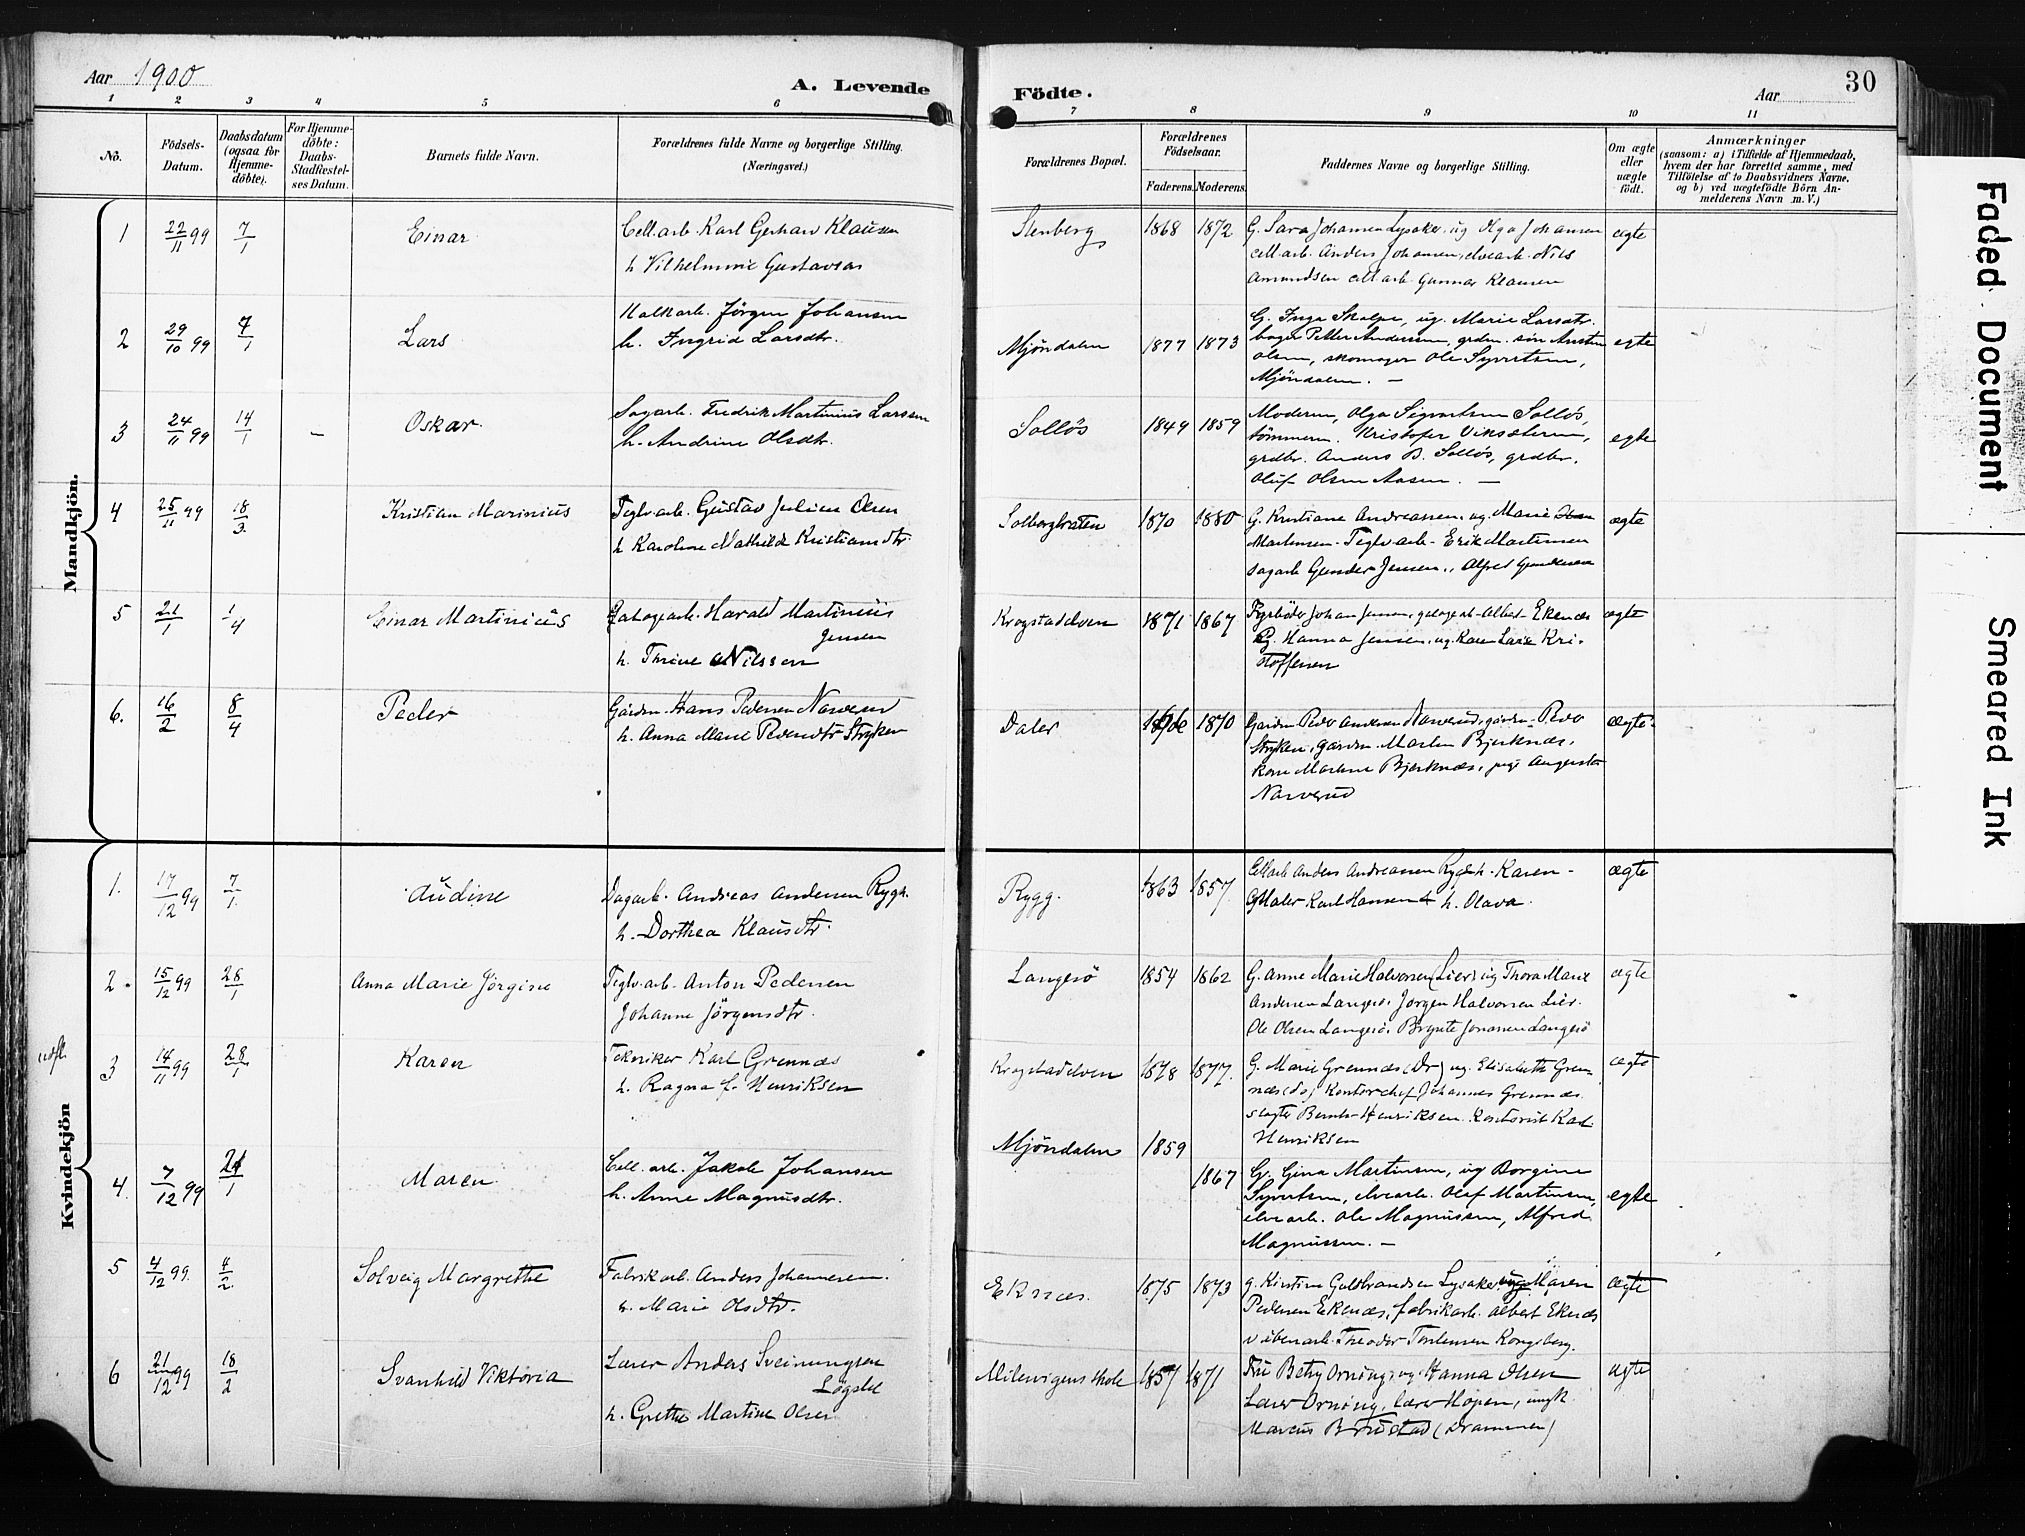 Aar 1900
A. Levende
Födte.
Aar
30
1 2 3 4 5 6 7 8 9 10 11
No.
Födsels-
Datum.
Daabsdatum
(ogsaa for
Hjemme-
döbte).
For Hjemme-
döbte:
Daabs-
Stadfæstel-
ses Datum.
Barnets fulde Navn.
Forældrenes fulde Navne og borgerlige Stilling.
(Næringsvei.)
Forældrenes Bopæl.
Forældrenes
Födselsaar.
Faderens. Moderens.
Faddernes Navne og borgerlige Stilling.
Om ægte
eller
uægte
födt.
Anmærkninger
(saasom: a) i Tilfælde af Hjemmedaab,
hvem der har forrettet samme, med
Tilföielse af to Daabsvidners Navne.
og b) ved uægtefödte Börn An-
melderens Navn m. V.)
Mandkjön.
1 22/11 99 7/1 Einar
Cell.arb. Karl Gerhard Klausen
h. Vilhelmine Gustavsen
Stenberg 1868 1872
G. Sara Johansen Lysaker, ug Olga Johansen
cell.arb. Anders Johansen, elvearb. Nils
Amundsen cell.arb. Gunnar Klausen
ægte
2 29/10 99 7/1 Lars
Kalkarb. Jörgen Johansen
h. Ingrid Larsdtr.
Mjöndalen 1877 1873
G. Inga Skalpe, ug. Marie Larsdtr.
bager Petter Andersen, grdm. sön Anton
Olsen, skomager Ole Syvertsen,
Mjöndalen. —
egte
3 24/11 99 14/1 – Oskar.
Sagarb. Fredrik Martinius Larsen
h. Andrine Olsdtr.
Solløs 1849 1859
Moderen, Olga Sigvartsen Solløs,
tømmerm. Kristofer Viksstern,
grdbr. Anders B. Solløs, grdbr.
Oluf Olsen Aasen. —
egte
4 25/11 99 18/3 Kristian Marinius
Teglv.arb. Gustav Julius Olsen
h. Karoline Mathilde Kristiansdtr.
Solbergbraten 1870 1880
G. Kristiane Andreassen, ug. Marie
Martinsen. Teglv.arb. Erik Martinsen
sagarb Gunder Jensen, Alfred Gundersen
ægte
5 21/1 1/4 Einar Martinius
Harald Martinius
Jensen
h. Thrine Nilssen
Krogstadelven 1871 1867
Fyrböder Johan Jensen, Albert Ekenæs
Pg. Hanna Jensen, ug. Karen Lovise Kri-
stoffersen
ægte
6. 16/2 8/4 Peder
Gårdm. Hans Pedersen Narverud
h. Anna Marie Pedersdtr Stryken
Daler 1870
Gårdm. Peder Andersen Narverud, gårdm. Peder
Stryken, gårdm. Martin Bjerknæs,
Kone Martine Bjerknæs, pige Augusta
Narverud
ægte.
Kvindekjön
1. 17/12 99 7/1. Audine
Dagarb. Andreas Andersen Rygh.
h. Dorthea Klausdtr.
Rygg. 1863 1857
Cell.arb Anders Andreassen Rygh h. Karen –
Maler Karl Hansen h. Olava.
ægte
2. 15/12 99 28/1 Anna Marie Jörgine
Teglv.arb. Anton Pedersen
Johanne Jörgensdtr.
Langesö 1854 1862
G. Anne Marie Halvorsen (Lier) ug Thora Marie
Andersen Langesö. Jörgen Halvorsen Lier.
Ole Olsen Langesö. Brynte Jonassen Langesö
ægte
udfl. 3 14/11 99 28/1 Karen
Tekniker Karl Grennæs
h. Ragna f. Henriksen
Krogstadelven 1878 1877.
G. Marie Grennæs (Dr) ug. Elisabeth Gren-
næs (do) Kontorchef Johannes Grennæs
Henriksen. Kontorist Karl
Henriksen
ægte
4. 7/12 99 21/1 Maren
Cell. arb. Jakob Johansen
h. Anne Magnusdtr.
Mjöndalen 1859 1867
G. Gina Martinsen, ug Borgine
Syvertsen, elvearb. Olaf Martinsen,
elvearb. Ole Magnussen, Alfred
Magnussen. —
egte
5 4/12 99. 4/2. Solveig Margrethe
Fabrikarb. Anders Johannesen.
h. Marie Olsdtr.
Eknæs. 1875 1873
g. Kirstine Gulbrandsen Lysaker, ug Maren
Pedersen Ekenæs, fabrikarb. Albert Ekenæs
Theodor Torstensen Kongsberg.
ægte
6 21/12 99 18/2 Svanhild Viktoria
Lærer Anders Sveinungsen
Løgslid
h. Grethe Martine Olsen
Milevigens skole 1857 1871
Fru Betzy Orning, ug. Hanna Olsen
Lærer Orning, lærer Hojem, ungk.
Marcus Brustad (Drammen)
ægte
Faded Document
Smeared Ink